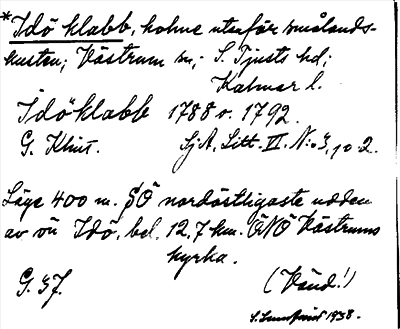 *Idö klabb, holme utanför smålands-
kusten; Västrum sn; S. Tjusts hd;
Kalmar l.
Idö klabb 1788 o. 1792.
G. Klint. SjA, Litt. VI. N:o 3, 1 o 2.
Läge 400 m. SÖ nordöstligaste udden
av ön Idö, bel. 12,7 km. ÖNÖ Västrums
kyrka.
G. 37. (Vänd!)
1938.